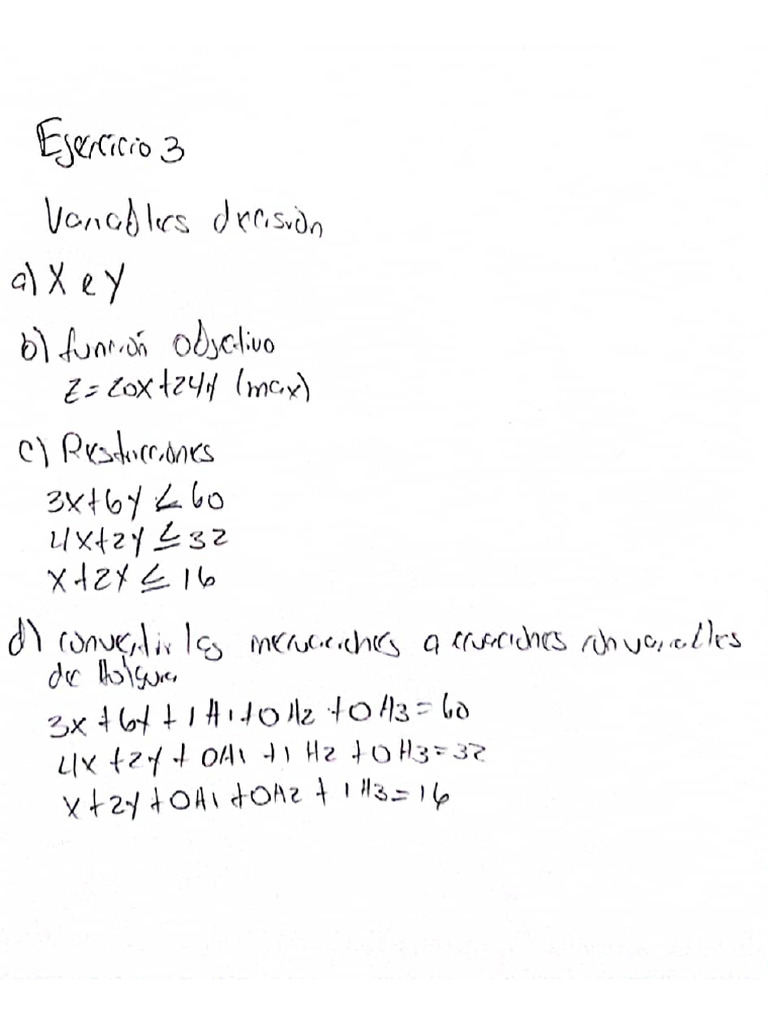 Ejercicio 3
Variables decisión
a) X e Y
b) función objetivo
Z = 20X + 24Y (max)
c) Restricciones
3X + 6Y ≤ 60
4X + 2Y ≤ 32
X + 2Y ≤ 16
d) convertir las inecuaciones a ecuaciones con variables
de Holgura
3X + 6Y + 1H1 + 0H2 + 0H3 = 60
4X + 2Y + 0H1 + 1H2 + 0H3 = 32
X + 2Y + 0H1 + 0H2 + 1H3 = 16